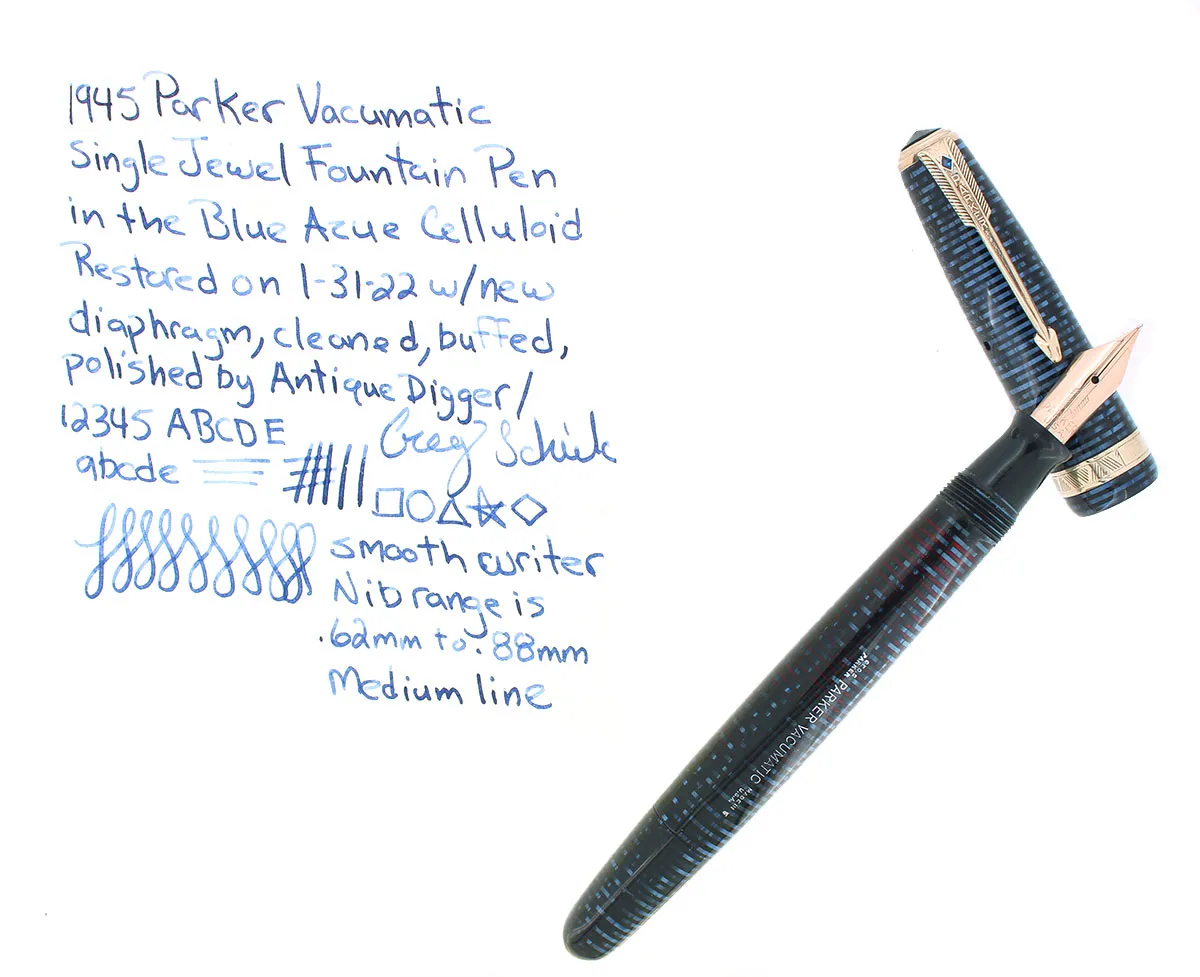 1945 Parker Vacumatic
Single Jewel Fountain Pen
in the Blue Azue Celluloid
Restored on 1-31-22 w/new
diaphragm, cleaned, buffed,
polished by Antique Digger/
12345 ABCDE
Greg
abcde
smooth writer
Nib range is
.62mm to .88mm
Medium line
PARKER
GEO.S.
PARKER
PARKER VACUMATIC
MADE IN
U.S.A.